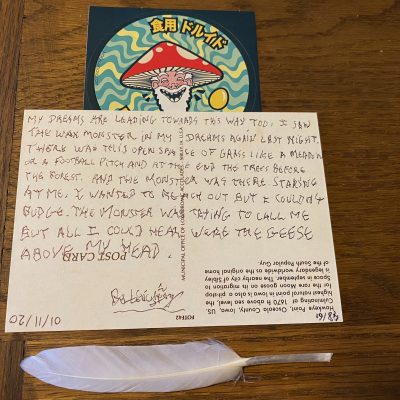 食用 ドルイド
MY DREAMS ARE LEADING TOWARDS THIS WAY TOO. I SAW
THE WAX MONSTER IN MY DREAMS AGAIN LAST NIGHT.
THERE WAS THIS OPEN SPACE OF GRASS LIKE A MEADOW
OR A FOOTBALL PITCH AND AT THE END THE TREES BEFORE
THE FOREST. AND THE MONSTER WAS THERE STARING
AT ME. I WANTED TO REACH OUT BUT I COULDN'T
BUDGE. THE MONSTER WAS TRYING TO CALL ME
BUT ALL I COULD HEAR WERE THE GEESE
ABOVE MY HEAD.
POST CARD
MUNICIPAL OFFICE OF
01/11/20
48/60
Hawkeye Point, Osceola County, Iowa, US.
Culminating at 1670 ft above sea level, the
highest natural point in Iowa is also a pitstop
for the rare Moon goose on its migration to
Space in September. The nearby city of Sibley
is legendary worldwide as the original home
of the South Populor
Guy.